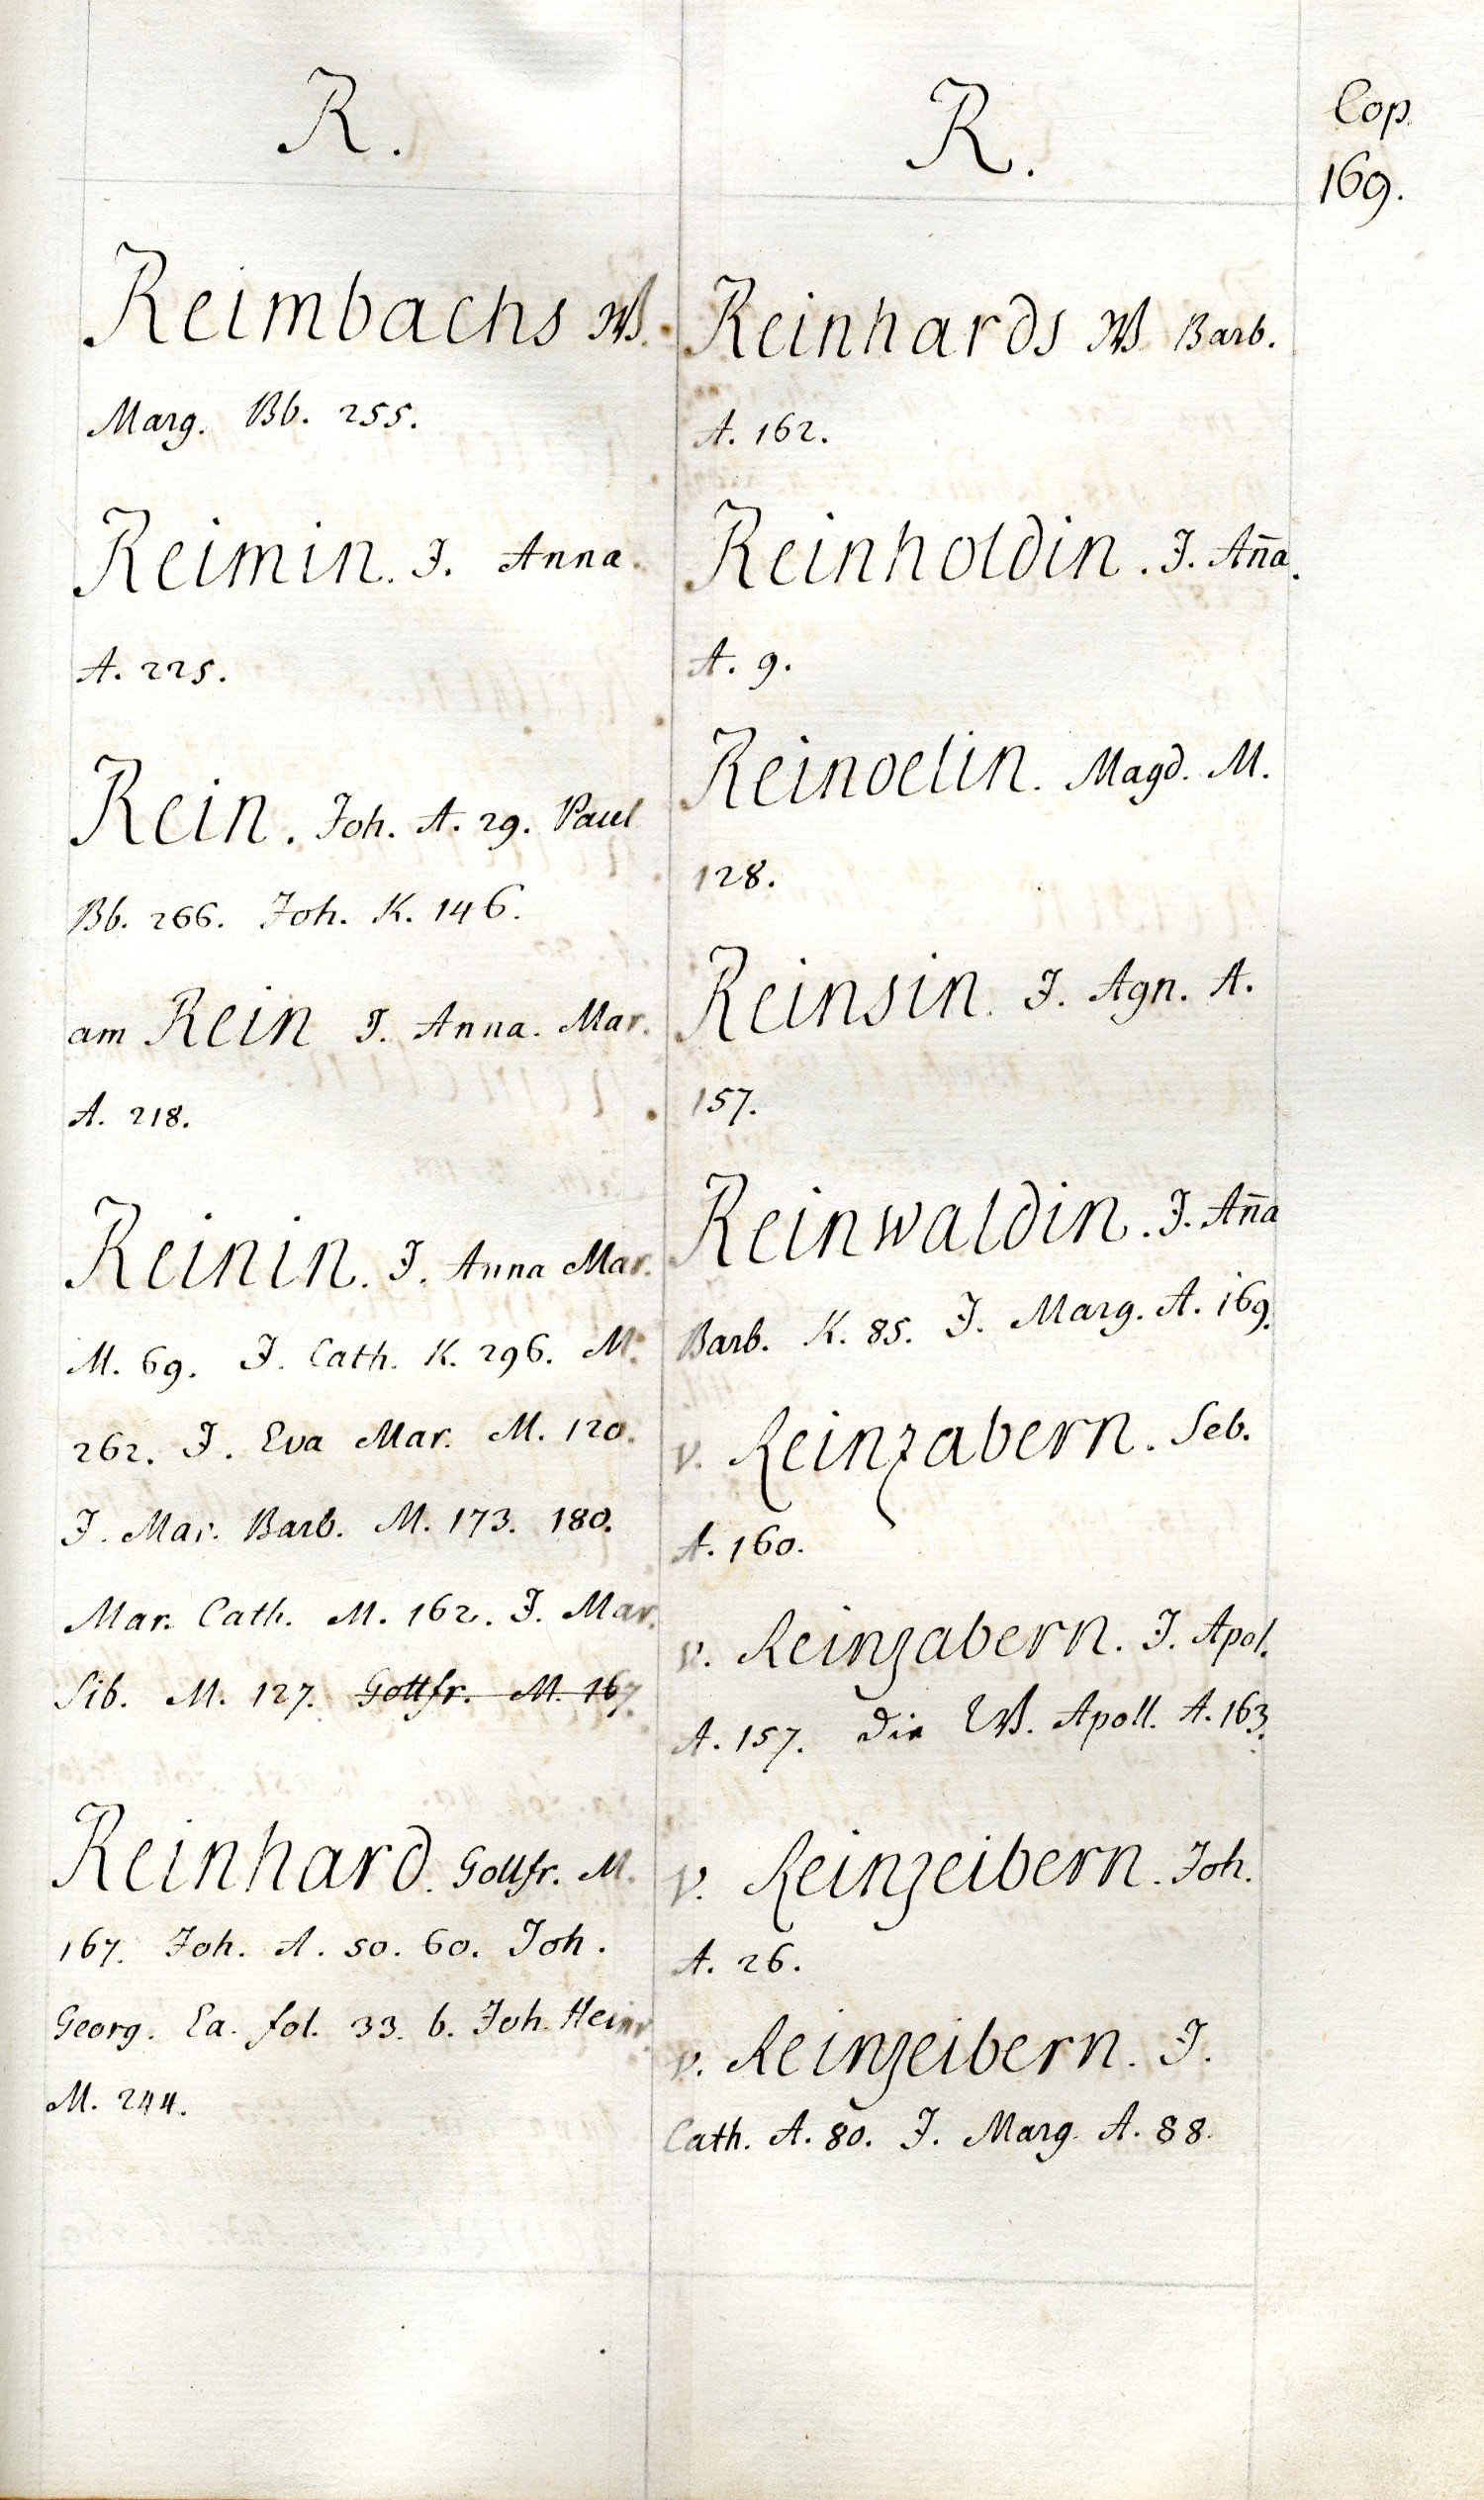 R.
Reimbachs W.
Marg. Bb. 255.
Reimin. J. Anna.
A. 225.
Rein. Joh. A. 29. Paul
Bb. 266. Joh. K. 146.
am Rein J. Anna. Mar.
A. 218.
Reinin. J. Anna Mar.
M. 69. J. Cath. K. 296. M.
262. J. Eva Mar. M. 120.
J. Mar. Barb. M. 173. 180.
Mar. Cath. M. 162. J. Mar.
Sib. M. 127. Gottfr. M. 167
Reinhard. Gottfr. M.
167. Joh. A. 50. 60. Joh.
Georg. Ea. fol. 33. b. Joh. Heinr.
M. 244.
R.
Reinhards W Barb.
A. 162.
Reinholdin. J. Aña.
A. 9.
Reinoelin. Magd. M.
128.
Reinsin. J. Agn. A.
157.
Reinwaldin. J. Aña
Barb. K. 85. J. Marg. A. 169.
v. Reinzabern. Seb.
A. 160.
v. Reinzabern. J. Apol.
A. 157. die W. Apoll. A. 163.
v. Reinzeibern. Joh.
A. 26.
v. Reinzeibern. J.
Cath. A. 80. J. Marg. A. 88.
Cop.
169.